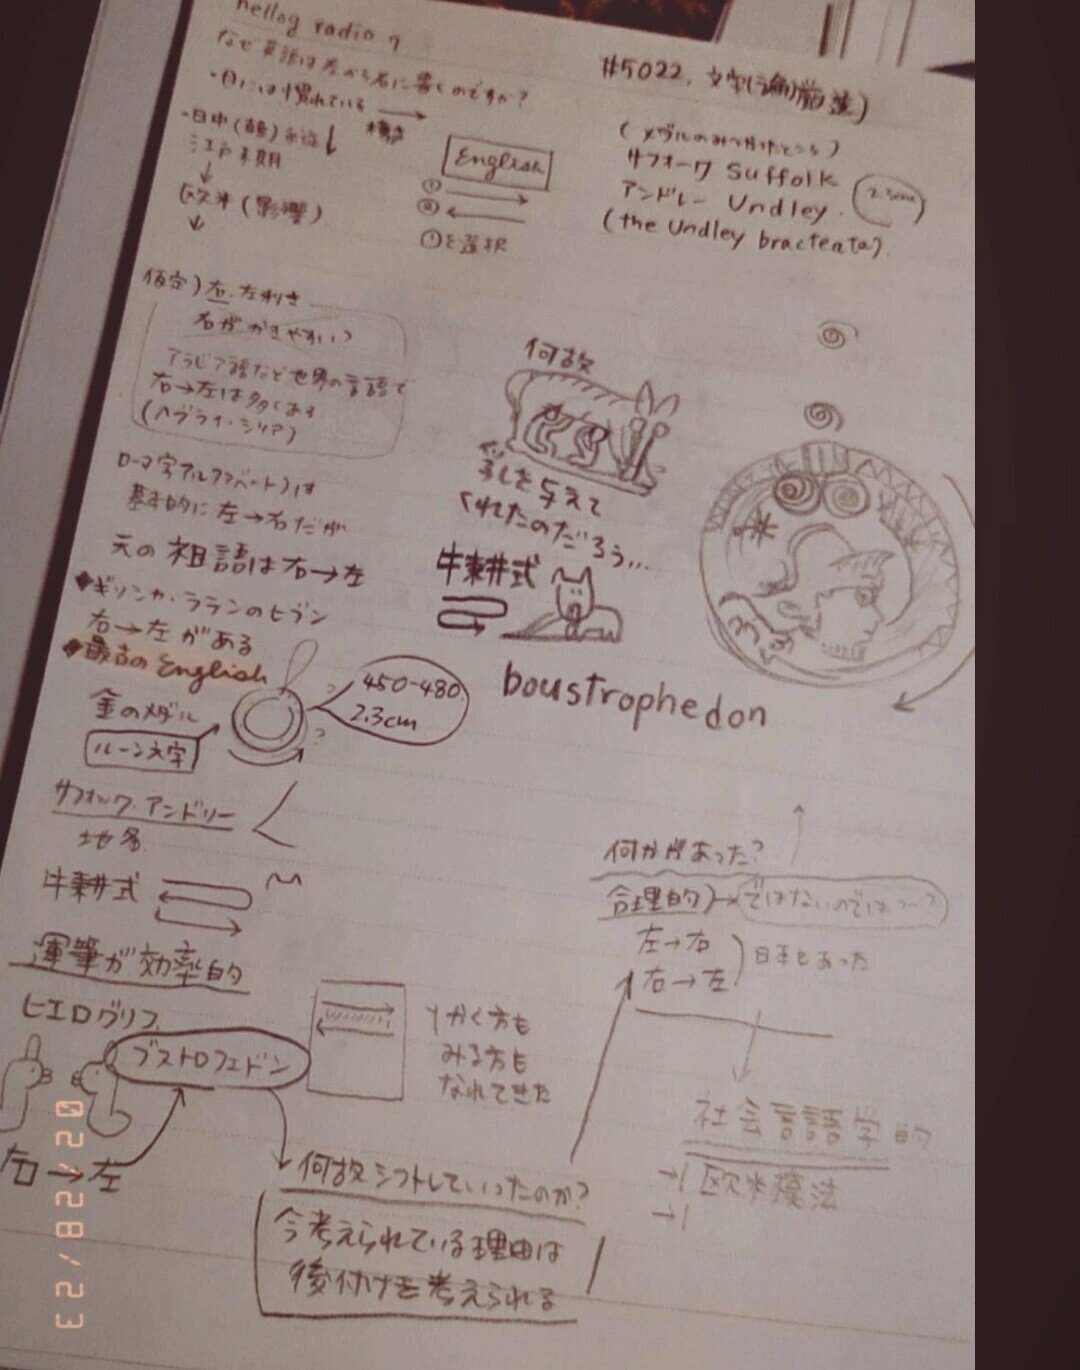 hellog radio 7
なぜ英語は左から右に書くのですか?
・日には慣れている → 横書
・日中(韓)
江戸末期
↓
欧米(影響)
↓
English
①
②
①を選択
#5022,
(メダルのみつかったところ)
サフォーク Suffolk
アンドレー Undley.
(the Undley bracteate).
仮定)右.左利き
右がかきやすい?
アラビア語など世界の言語で
右→左は多くあり
(ヘブライ・シリア)
ローマ字アルファベット)は
基本的に左→右だが
元の祖語は右→左
◆ギリシャ・ラテンのヒブン
右→左がある
◆最古のEnglish
金のメダル
ルーン文字
450-480
2.3cm
サフォック.アンドリー
地名
牛耕式
運筆が効率的
ヒエログリフ
ブストロフェドン
右→左
かく方も
みる方も
なれてきた
何故シフトしていったのか?
今考えられている理由は
後付けを考えられる
何故
癒しを与えて
くれたのだろう…
牛耕式
boustrophedon
何かがあった?
合理的)→ではないのでは〜?
左→右
右→左
日本もあった
社会言語学的
→欧米模法
02/28/23